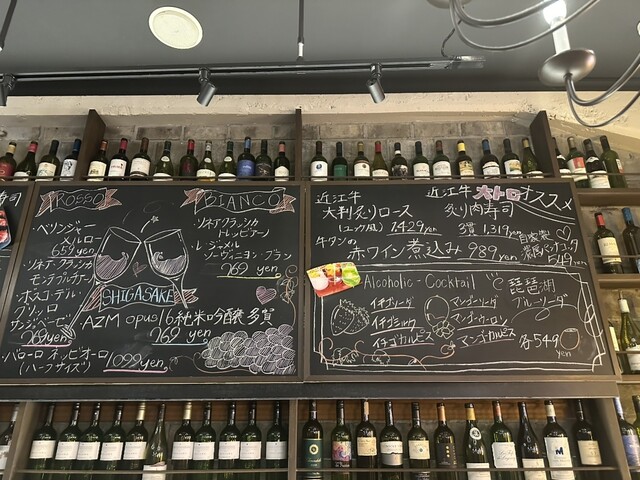 ROSSO
・ベリンジャー
メルロー
659yen
・ツネアクラシカ
モンテプルチアーノ
・ボスコ・デル・
グソッロ
サンジョベーゼ
769yen
・バローロ ネッビオーロ
(ハーフサイズ) 1099yen
BIANCO
・ツネアクラシッカ
トレッビアーノ
・レ・ジャメル
ソーヴィニヨン・ブラン
769yen
SHIGASAKE
・AZM opus16純米吟醸多賀
769yen
近江牛
大判炙りロース
(ユッケ風) 2429yen
牛タンの
赤ワイン煮込み 989yen
近江牛 大トロ オススメ
炙り肉寿司
3貫 1,319yen
自家製
549yen
Alcoholic-Cocktail
イチゴソーダ
イチゴミルク
イチゴカルピス
マンゴーソーダ
マンゴーウーロン
マンゴカルピス
琵琶湖
ブルーソーダ
各549
yen
寿司